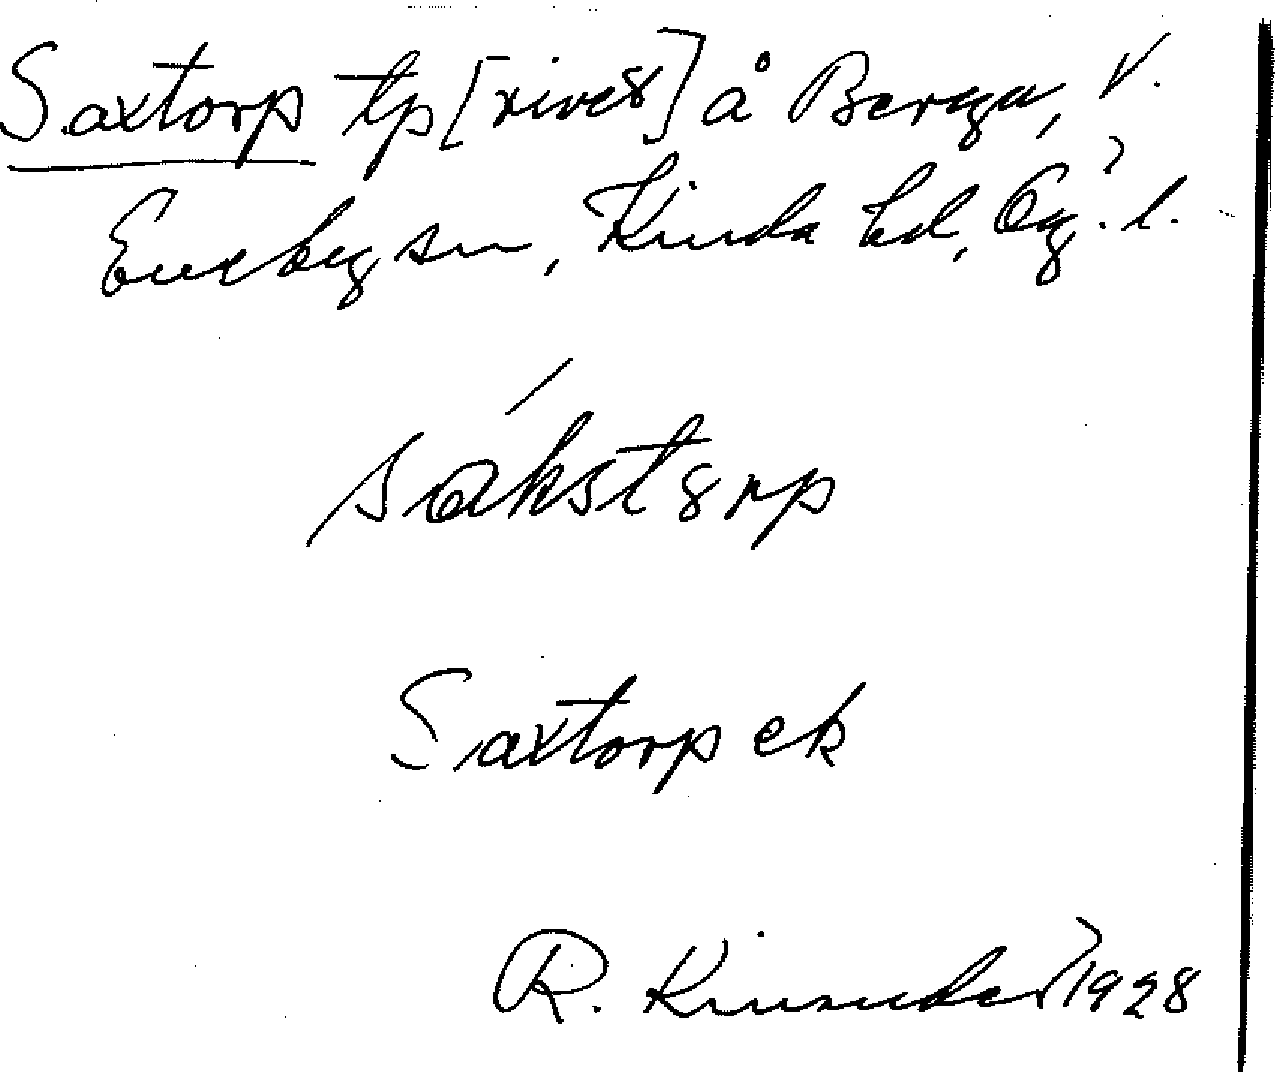 Saxtorp tp [rivet] å Berga, V.
Eneby sn, Kinda hd, Ög. l.
sákstorp
Saxtorp ek
R. 1928